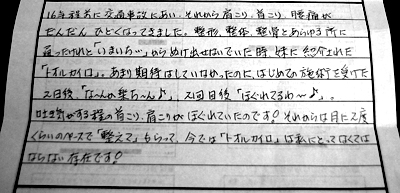 16年程前に交通事故にあい、それから肩こり、首こり、腰痛が
だんだんひどくなってきました。整形、整体、整骨とあらゆる所に
通ったけれど「いまいち…」からぬけ出せないでいた時、妹に紹介された
「トオルカイロ」。あまり期待はしていなかったのに、はじめての施術を受けた
2日後、「な〜んの楽ち〜ん♪」、2回目後「ほぐれてるわ〜♪」。
吐き気がする程の首こり、肩こりがほぐれていたのです!それからは月に2度
くらいのペースで「整えて」もらって、今では「トオルカイロ」は私にとってなくては
ならない存在です!